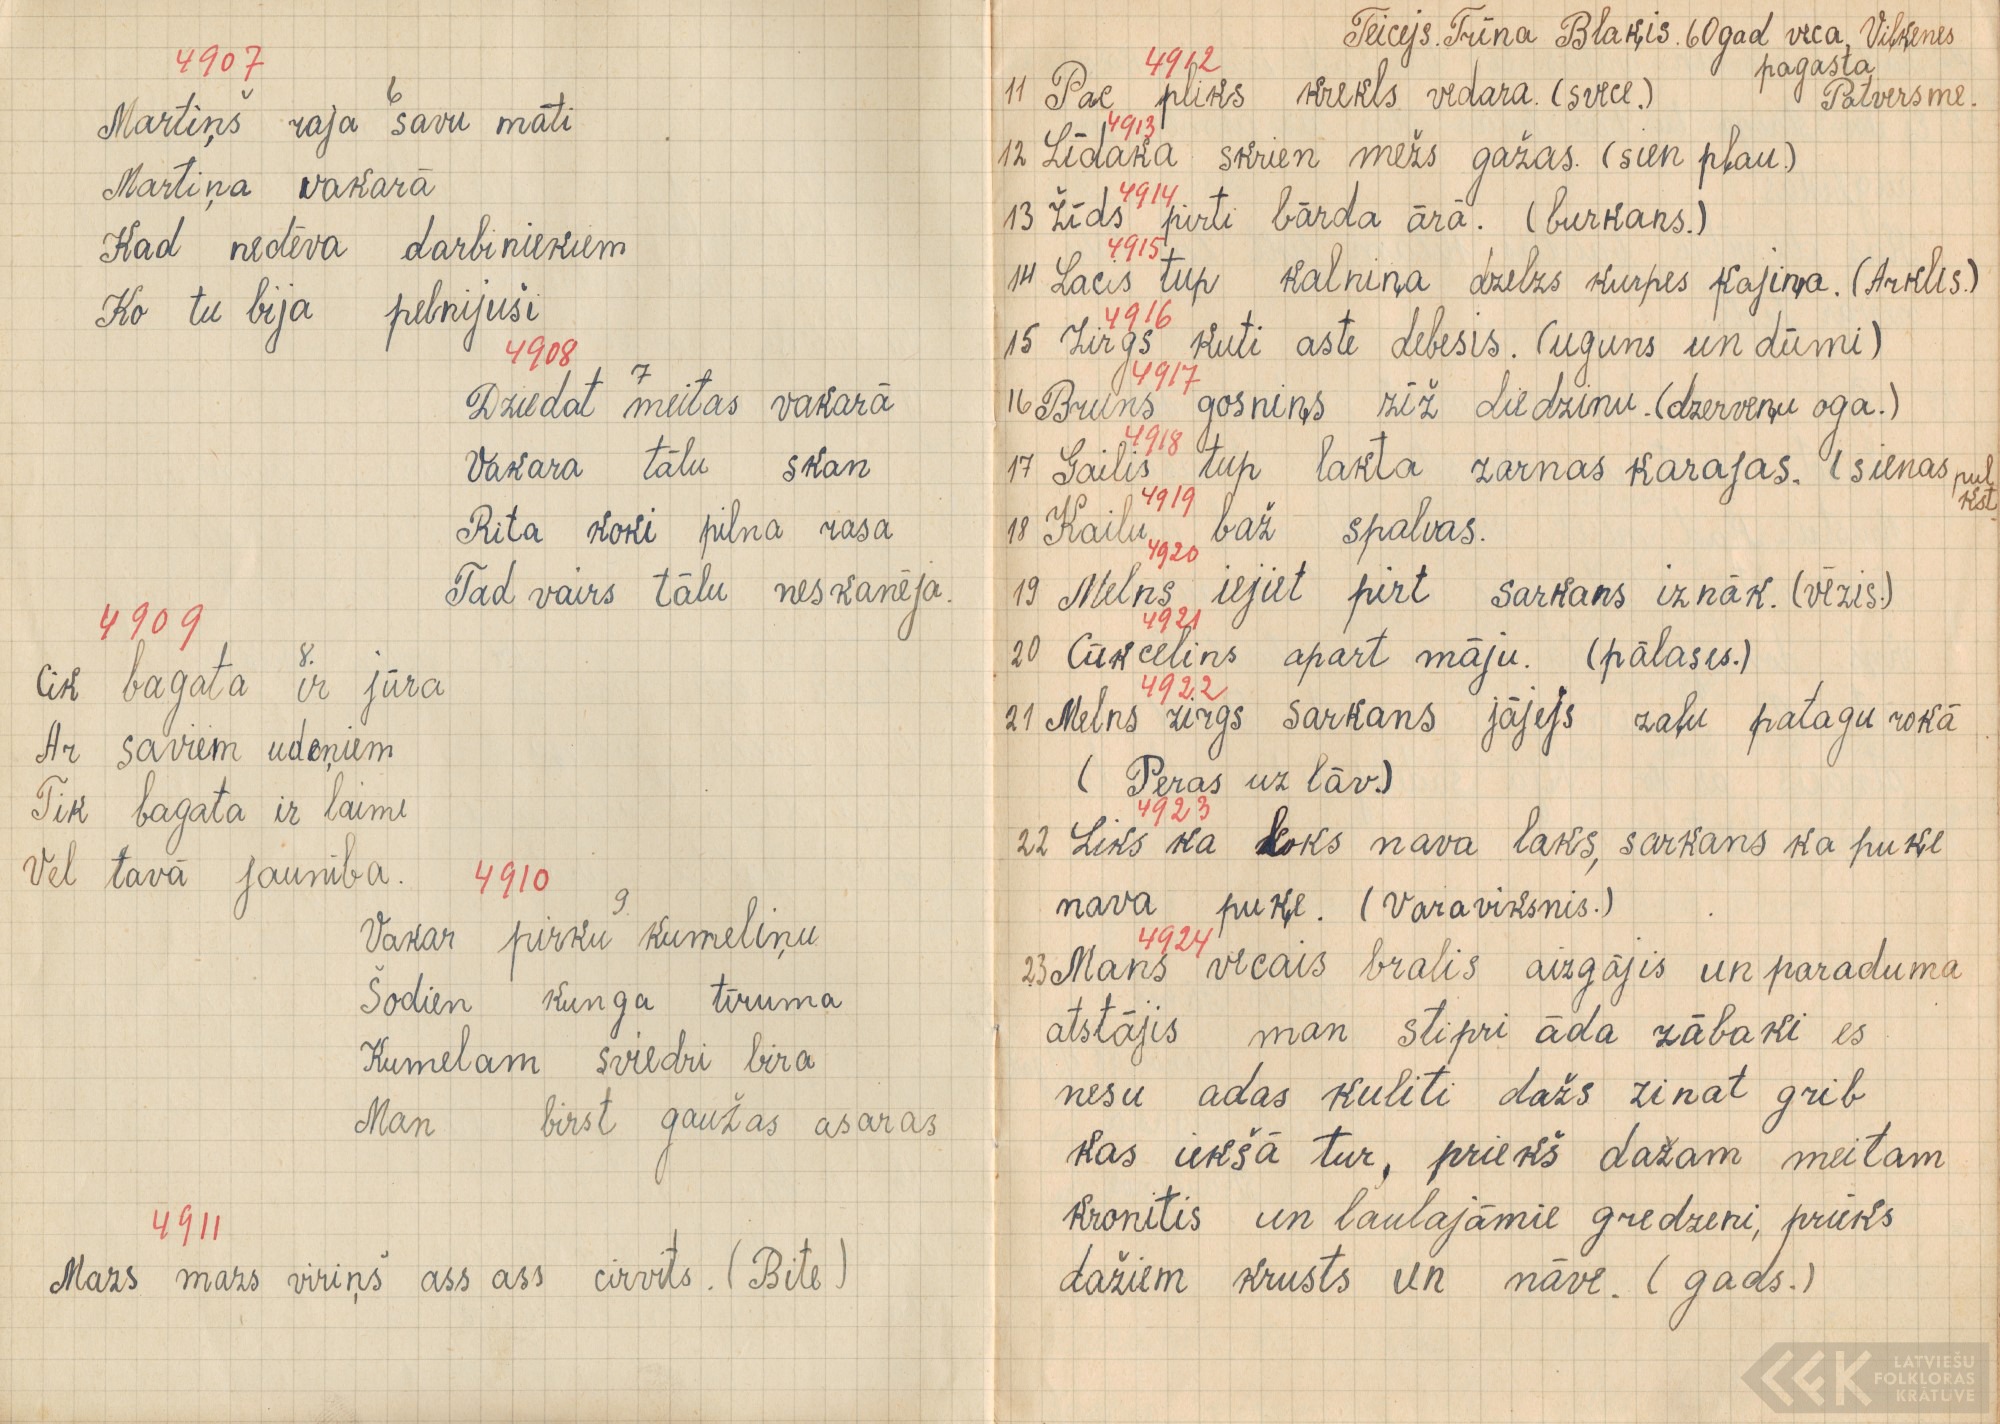 4907
6
Martiņš raja savu māti
Martiņa vakarā
Kad nedēva darbiniekiem
Ko tu bija pelnijuši
4908
7
Dziedat meitas vakarā
Vakara tālu skan
Rita koki pilna rasa
Tad vairs tālu neskanēja.
4909
8.
Cik bagata ir jūra
Ar saviem udeņiem
Tik bagata ir laime
Vel tavā jaunība.
4910
9
Vakar pirku kumeliņu
Šodien kunga tīruma
Kumelam sviedri bira
Man birst gaužas asaras
4911
Mazs mazs viriņš ass ass cirvits. (Bite)
Teicejs. Trīna Blaķis. 60gad veca, Viļķenes
pagasta
Patversme.
4912
11 Pac pliks krekls vedara. (svece.)
4913
12 Līdaka skrien mežs gažas. (sien pļau.)
4914
13 Žīds pirti bārda ārā. (burkans.)
4915
14 Lacis tup kalniņa dzelzs kurpes kajiņa. (Arklis.)
4916
15 Zirgs kuti aste debesis. (uguns un dūmi)
4917
16 Bruns gosniņs zīž diedziņu. (dzerveņu oga.)
4918
17 Gailis tup lakta zarnas karajas. (sienas pul
kst.
4919
18 Kailu baž spalvas.
4920
19 Melns iejiet pirt sarkans iznāk. (vēzis.)
4921
20 Cūkcelins apart māju. (pālases.)
4922
21 Melns zirgs sarkans jājejs zaļu patagu rokā
( Peras uz lāv.)
4923
22 Liks ka loks nava laks, sarkans ka puķe
nava puķe. (Varaviksnis.)
4924
23 Mans vecais bralis aizgājis un paraduma
atstājis man stipri āda zābaki es
nesu adas kuliti dažs zinat grib
kas iekšā tur, priekš dažam meitam
kronitis un laulajāmie gredzeni, prieks
dažiem krusts un nāve. (gads.)
LATVIEŠU
FOLKLORAS
KRĀTUVE